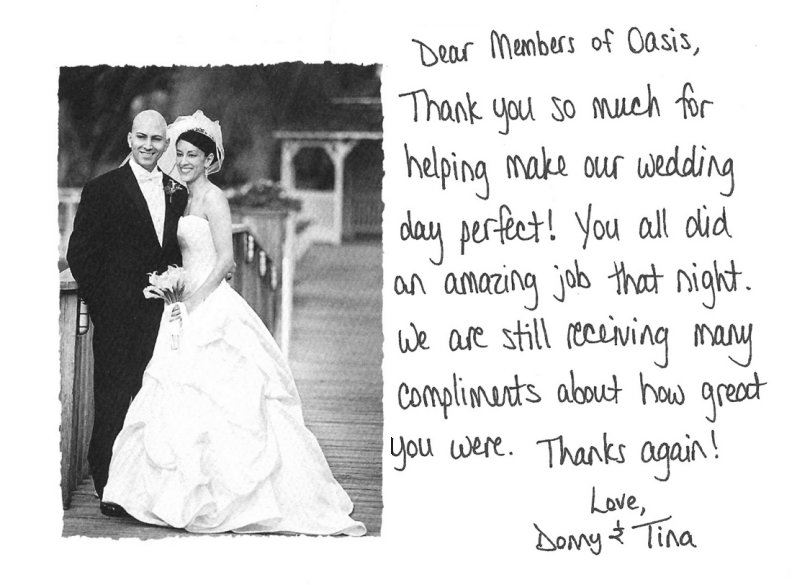 Dear Members of Oasis,
Thank you so much for
helping make our wedding
day perfect! You all did
an amazing job that night.
We are still receiving many
compliments about how great
you were. Thanks again!
Love,
Donny & Tina